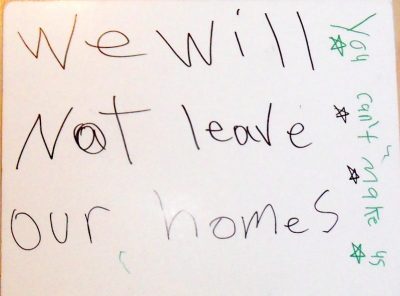 We Will
Not leave
our homes
You can't make us